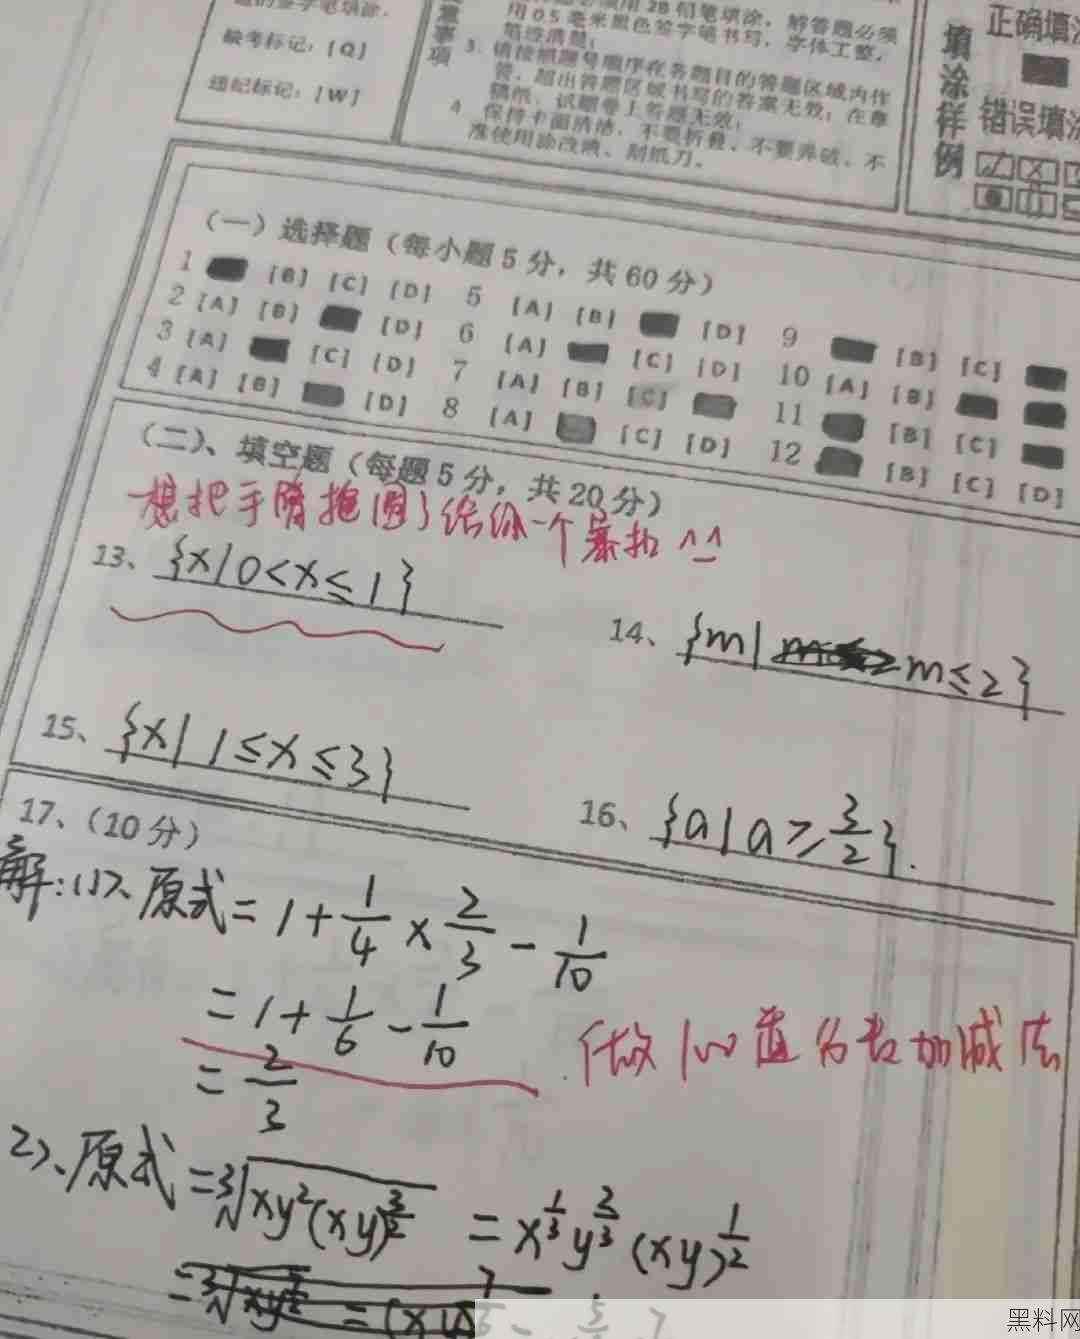 缺考标记:[Q]
违纪标记:[W]
用0.5毫米黑色签字笔书写,字体工整,
笔迹清楚;
3. 请按照题号顺序在各题目的答题区域内作
答,超出答题区域书写的答案无效;在草
稿纸、试题卷上答题无效;
4. 保持卡面清洁,不要折叠、不要弄破、不
准使用涂改液、刮纸刀。
填涂样例
正确填
错误填
(一)选择题(每小题5分,共60分)
1 [B] [C] [D] 5 [A] [B] [D] 9 [B] [C]
2 [A] [B] [D] 6 [A] [C] [D] 10 [A] [B]
3 [A] [C] [D] 7 [A] [B] [C] 11 [B] [C]
4 [A] [B] [D] 8 [A] [C] [D] 12 [B] [C] [D]
(二)、填空题(每题5分,共20分)
想把手 给你一个暴扣 ^_^
13、{x|0<x≤1}
14、{m| m≤2}
15、{x|1≤x≤3}
16、{a|a≥3/2}.
17、(10分)
解:(1)、原式=1+1/4×2/3-1/10
=1+1/6-1/10
=2/3
做100道分数加减法
2)、原式=³√xy²(xy)^(3/2) =x^(1/3)y^(2/3)(xy)^(1/2)
黑料网